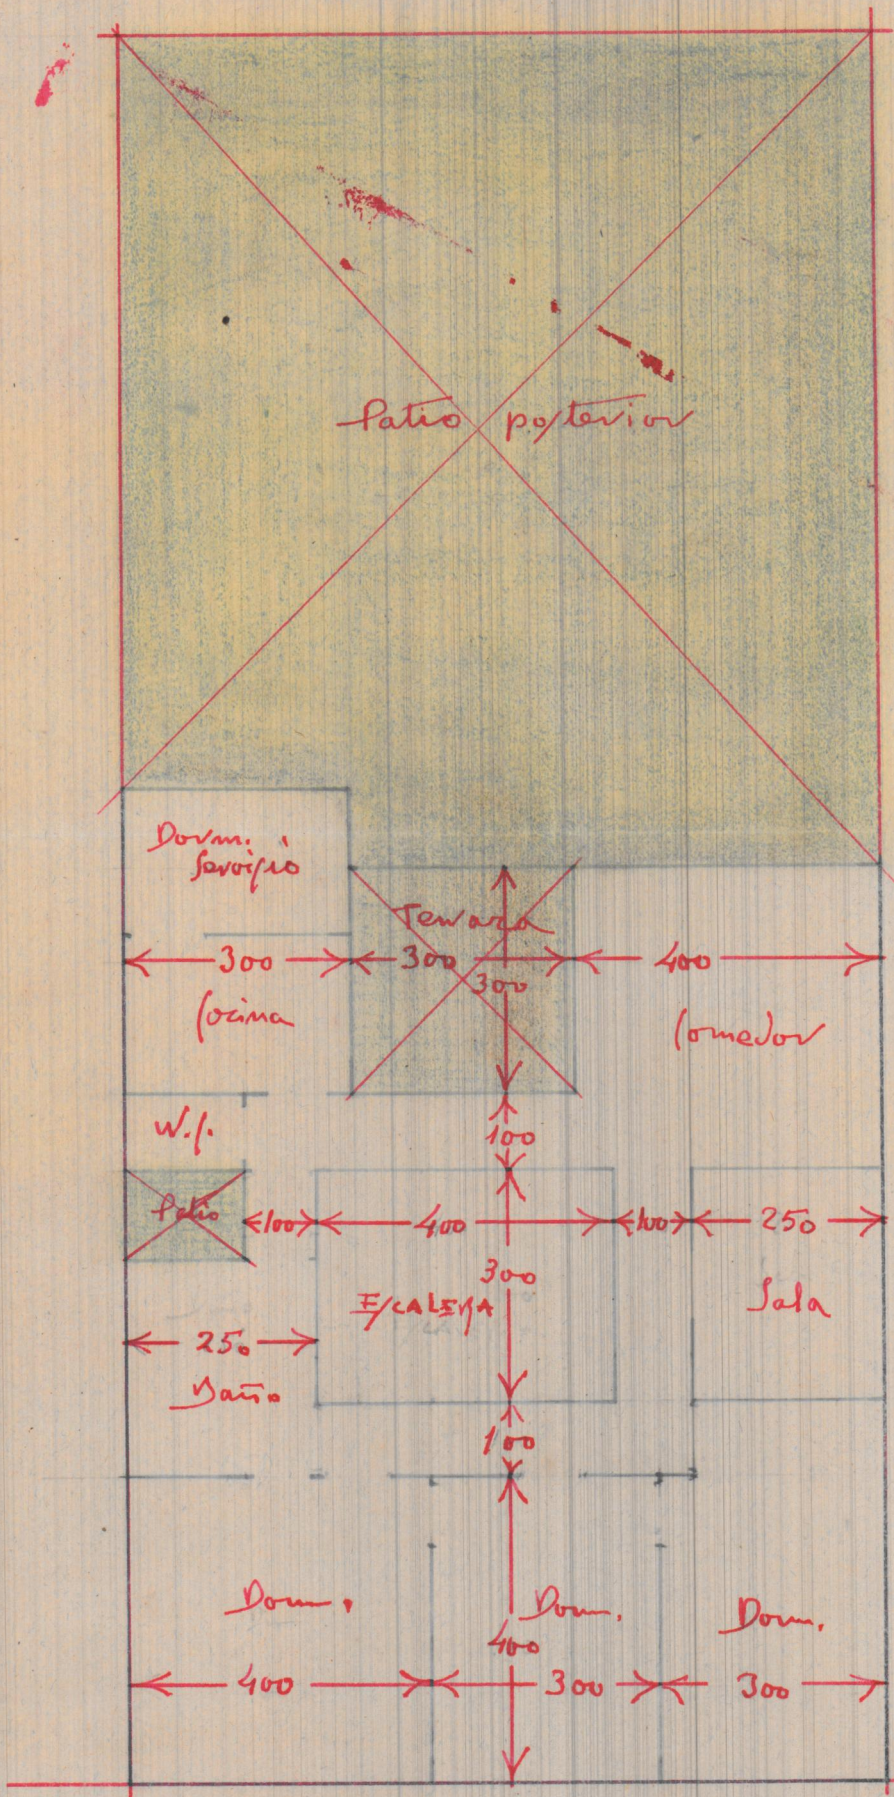 Patio posterior
Dorm.
Servicio
Terraza
300
300
400
300
Cocina
Comedor
W.C.
100
Patio
100
400
100
250
300
ESCALERA
Sala
250
Baño
100
Dorm.
Dorm.
Dorm.
400
400
300
300